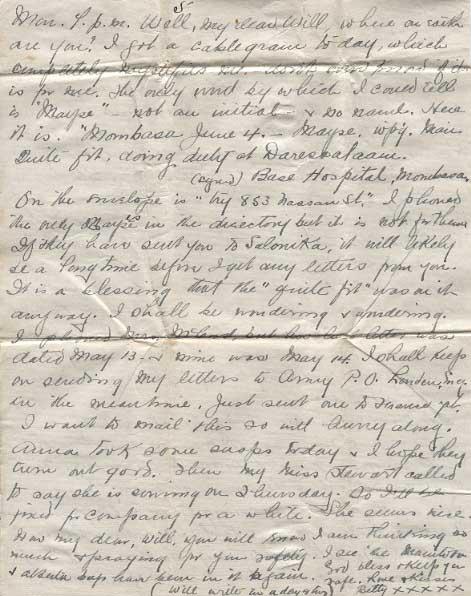 Mon. 5 p.m. Well, my dear Will, where on earth
are you? I got a cablegram to day, which
completely mystifies me.
is for me. The only word by which I could tell
is "Mayse" - not an initial - & no name. Here
it is. "Mombasa June 4. - Mayse. Wpg. Man.
Quite fit, doing duty at Daressalaam.
(sgnd) Base Hospital, Mombasa
On the envelope is "try 853 Nassau St." I phoned
the only Mayse in the directory but it is not for them
If they have sent you to Salonika, it will likely
be a long time before I get any letters from you.
It is a blessing that the "quite fit" was on it
anyway. I shall be wondering & wondering.
I phoned Mrs. but her last letter was
dated May 13 - & mine was May 14. I shall keep
on sending my letters to Army P.O. London, Eng
in the meantime. Just sent one to
I want to mail this so will hurry along.
Anna took some snaps today & I hope they
turn out good. Then my Miss Stewart called
to say she is coming on Thursday. So I'll be
fixed for company for a while. She seems nice.
Now my dear, Will, you will know I am thinking so
much & praying for your safety. I see the
& boys have been in it again. God bless & keep you
safe. Love & Kisses
(Will write in a day or two) Betty x x x x x